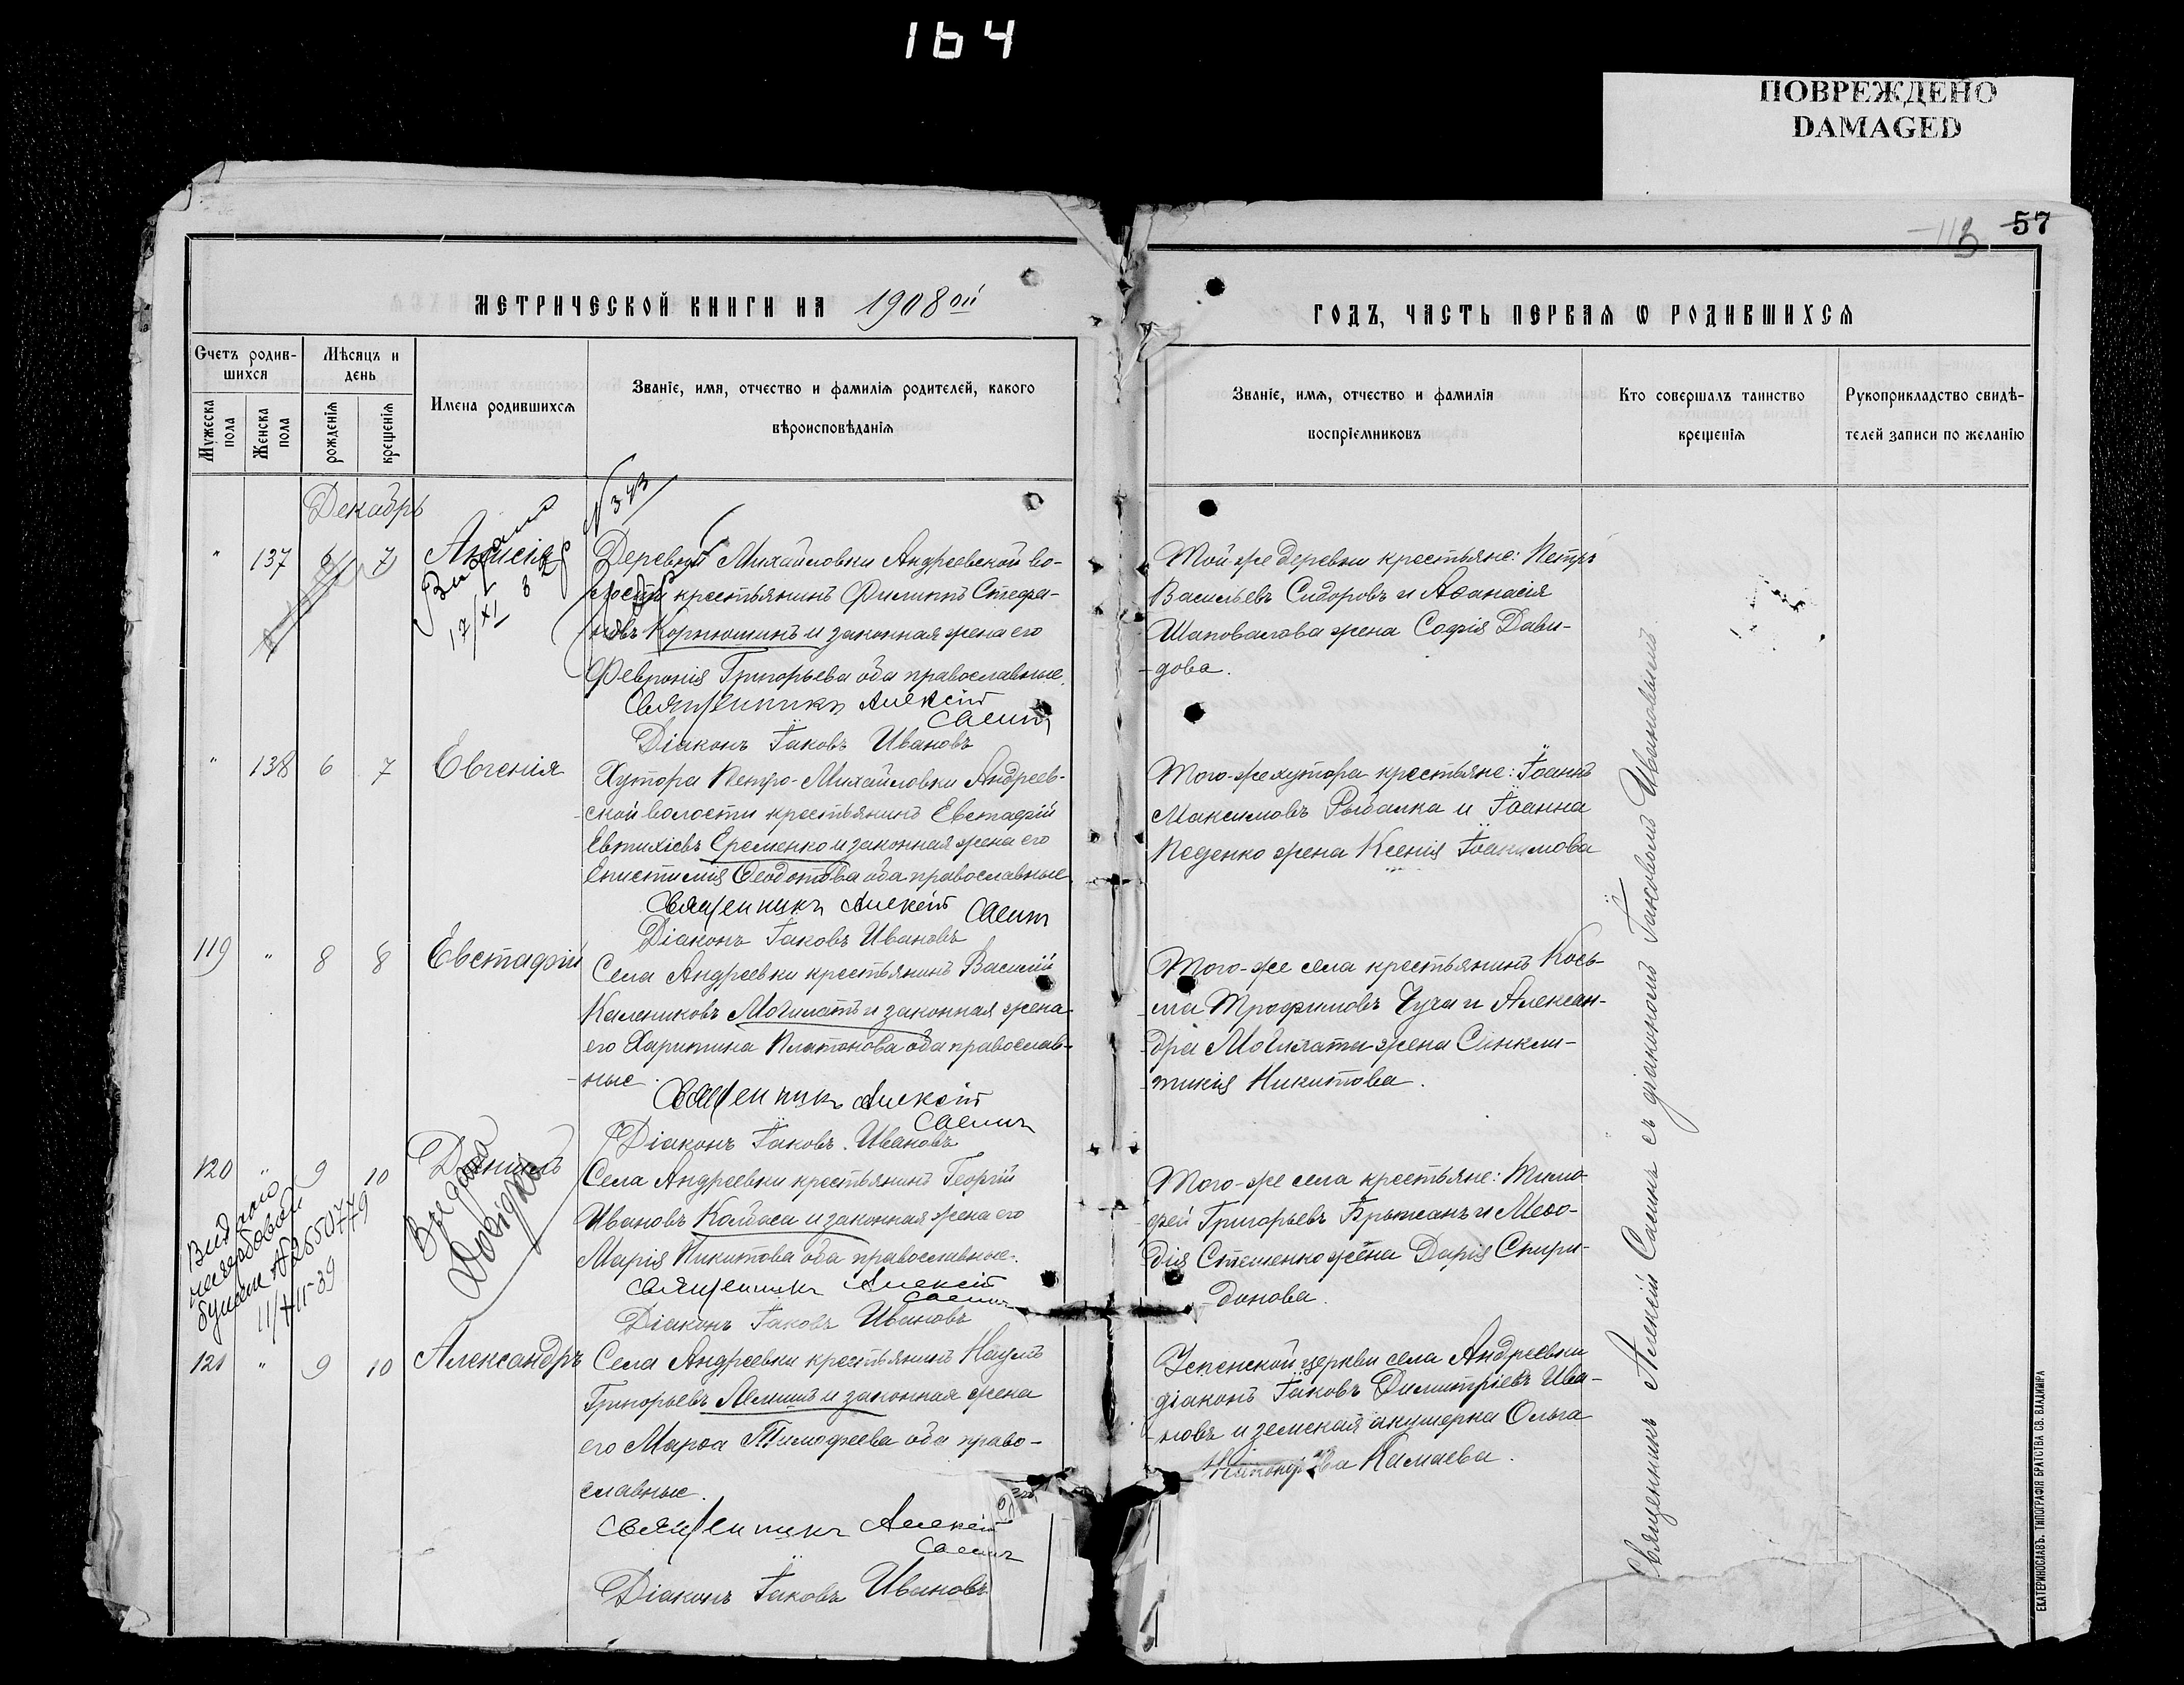 164
ПОВРЕЖДЕНО
DAMAGED
113 57
МЕТРИЧЕСКОЙ КНИГИ НА 1908ой
ГОДЪ, ЧАСТЬ ПЕРВАЯ Ѡ РОДИВШИХСЯ
Счетъ родив-
шихся
Мужеска пола
Женска пола
Мѣсяцъ и
день
рожденія
крещенія
Имена родившихся
Званіе, имя, отчество и фамилія родителей, какого
вѣроисповѣданія
Званіе, имя, отчество и фамилія
воспріемниковъ
Кто совершалъ таинство
крещенія
Рукоприкладство свидѣ-
телей записи по желанію
Декабрь
N 343
" 137 6 7 Анисія
17/XI
Деревни Михайловки Андреевской во-
лости крестьянинъ Филиппъ Стефа-
новъ Корнюшинъ и законная жена его
Февронія Григорьева оба православные.
Священникъ Алексій
Саенъ
Діаконъ Іаковъ Ивановъ
Той-же деревни крестьяне: Петръ
Васильевъ Сидоровъ и Аѳанасія
Шаповалова жена Софія Дави-
дова.
" 138 6 7 Евгенія
Хутора Петро-Михайловки Андреев-
ской волости крестьянинъ Евстафій
Евтихіевъ Еременко и законная жена его
Епистимія Ѳеодотова оба православные
Священникъ Алексій Саенъ
Діаконъ Іаковъ Ивановъ
Того-же хутора крестьяне: Іоаннъ
Максимовъ Рыбалка и Іоанна
Педенко жена Ксенія Іоакимова
119 " 8 8 Евстафій
Села Андреевки крестьянинъ Василій
Калениковъ Могилатъ и законная жена
его Харитина Платонова оба православ-
ные.
Священникъ Алексій
Саенъ
Діаконъ Іаковъ Ивановъ
Того-же села крестьянинъ Кось-
ма Трофимовъ Чуча и Алексан-
дра Могилата жена Синкли-
тикія Никитова.
120 " 9 10 Даніилъ
Села Андреевки крестьянинъ Георгій
Ивановъ Колбаса и законная жена его
Марія Никитова оба православные.
Священникъ Алексій
Саенъ
Діаконъ Іаковъ Ивановъ
Того-же села крестьяне: Тимо-
фей Григорьевъ Брыжанъ и Меѳо-
дія Стеценко жена Дарія Спири-
донова.
121 " 9 10 Александръ
Села Андреевки крестьянинъ Наумъ
Григорьевъ Лемишъ и законная жена
его Марѳа Тимофеева оба право-
славные.
Священникъ Алексій
Саенъ
Діаконъ Іаковъ Ивановъ
Успенской церкви села Андреевки
діаконъ Іаковъ Димитріевъ Ива-
новъ и земская акушерка Ольга
Камаева.
Священникъ Алексій Саенъ съ діакономъ Іаковомъ Ивановымъ
ЕКАТЕРИНОСЛАВЪ. ТИПОГРАФІЯ БРАТСТВА СВ. ВЛАДИМІРА